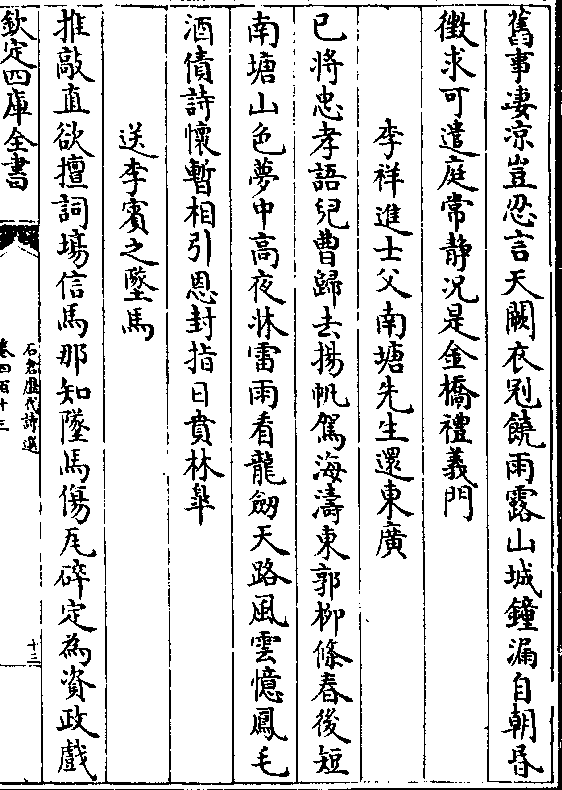 舊事凄凉豈忍言天闕衣冠饒雨露山城鐘漏自朝昏
徴求可遣庭常静況是金橋禮義門
李祥進士父南塘先生還東廣
已將忠孝語兒曹歸去揚帆駕海濤東郭柳條春後短
南塘山色夢中高夜牀雷雨看龍劒天路風雲憶鳳毛
酒債詩懷暫相引恩封指日賁林臯
送李賓之墜馬
推敲直欲擅詞場信馬那知墜馬傷瓦碎定為資政戲
欽定四庫全書
石倉歷代詩選
卷四百十三
十三